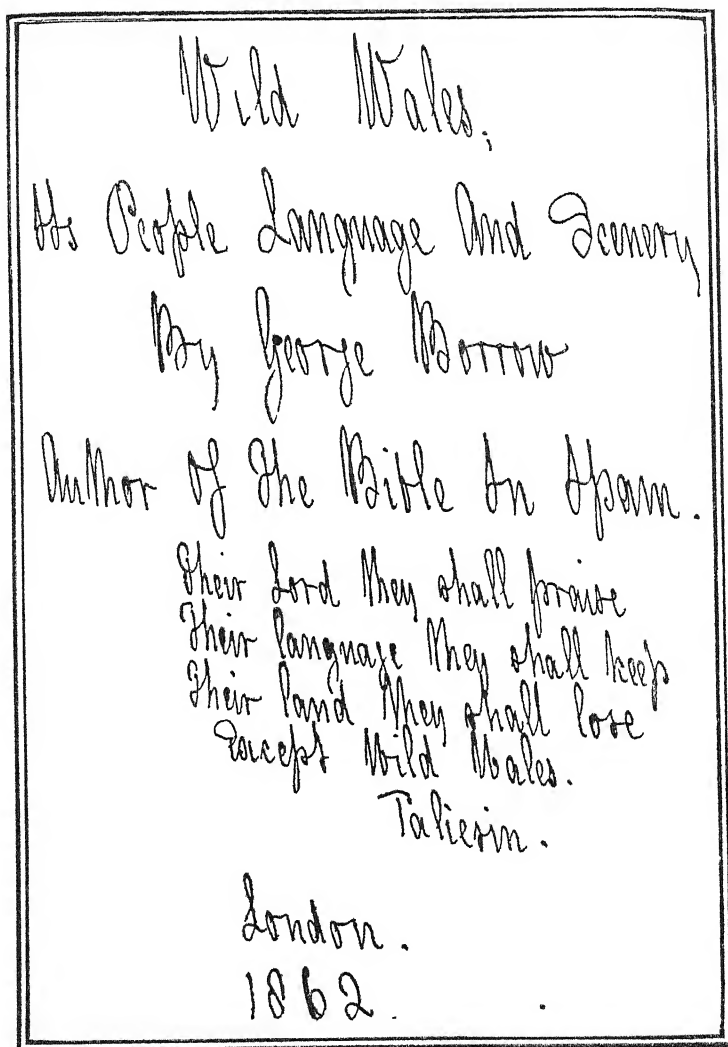 Wild Wales;
Its People Language And Scenery
By George Borrow
Author Of The Bible In Spain.
Their Lord they shall praise
Their language they shall keep
Their land they shall lose
Except Wild Wales.
Taliesin.
London.
1862.